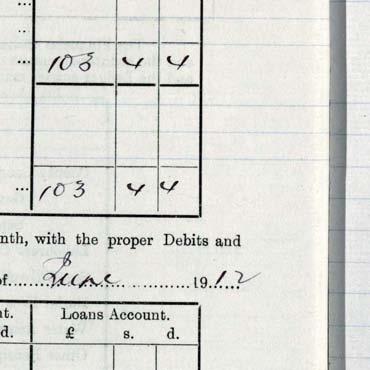 ...
..
... 103 4 4
... 103 4 4
nth, with the proper Debits and
of June 1912
nt. Loans Account.
d. £ s. d.